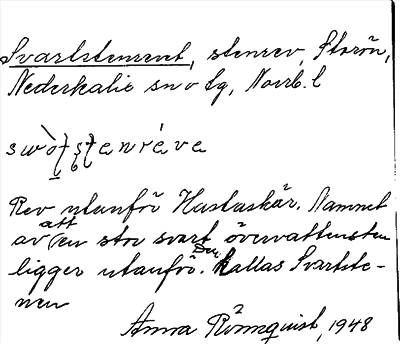 Svartstenrevet, stenrev, Storön,
Nederkalix sn o tg, Norrb. l

Rev utanför Hastaskär. Namnet
av att en stor svart övervattensten
ligger utanför. Den kallas Svartste-
nen
Anna Rönnquist, 1948